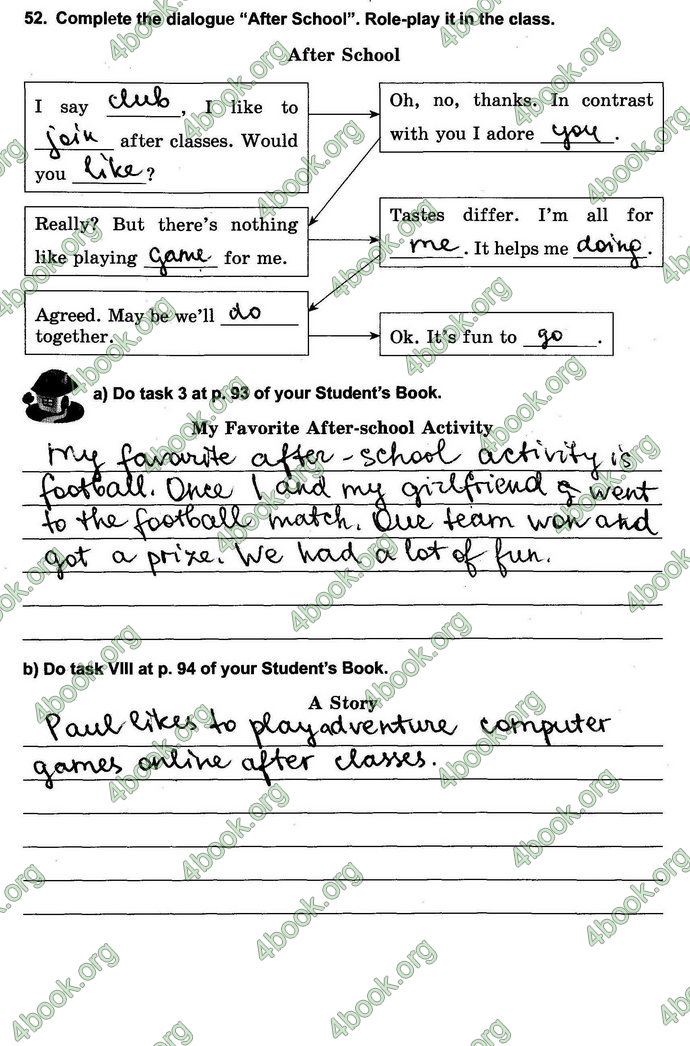 52. Complete the dialogue “After School”. Role-play it in the class.
After School
I say club, I like to
join after classes. Would
you like?
Oh, no, thanks. In contrast
with you I adore you.
Really? But there’s nothing
like playing game for me.
Tastes differ. I’m all for
me. It helps me doing.
Agreed. May be we’ll do
together.
Ok. It’s fun to go.
a) Do task 3 at p. 93 of your Student’s Book.
My Favorite After-school Activity
My favourite after-school activity is
football. Once I and my girlfriend went
to the football match. Our team won and
got a prize. We had a lot of fun.
b) Do task VIII at p. 94 of your Student’s Book.
A Story
Paul likes to play adventure computer
games online after classes.
4book.org